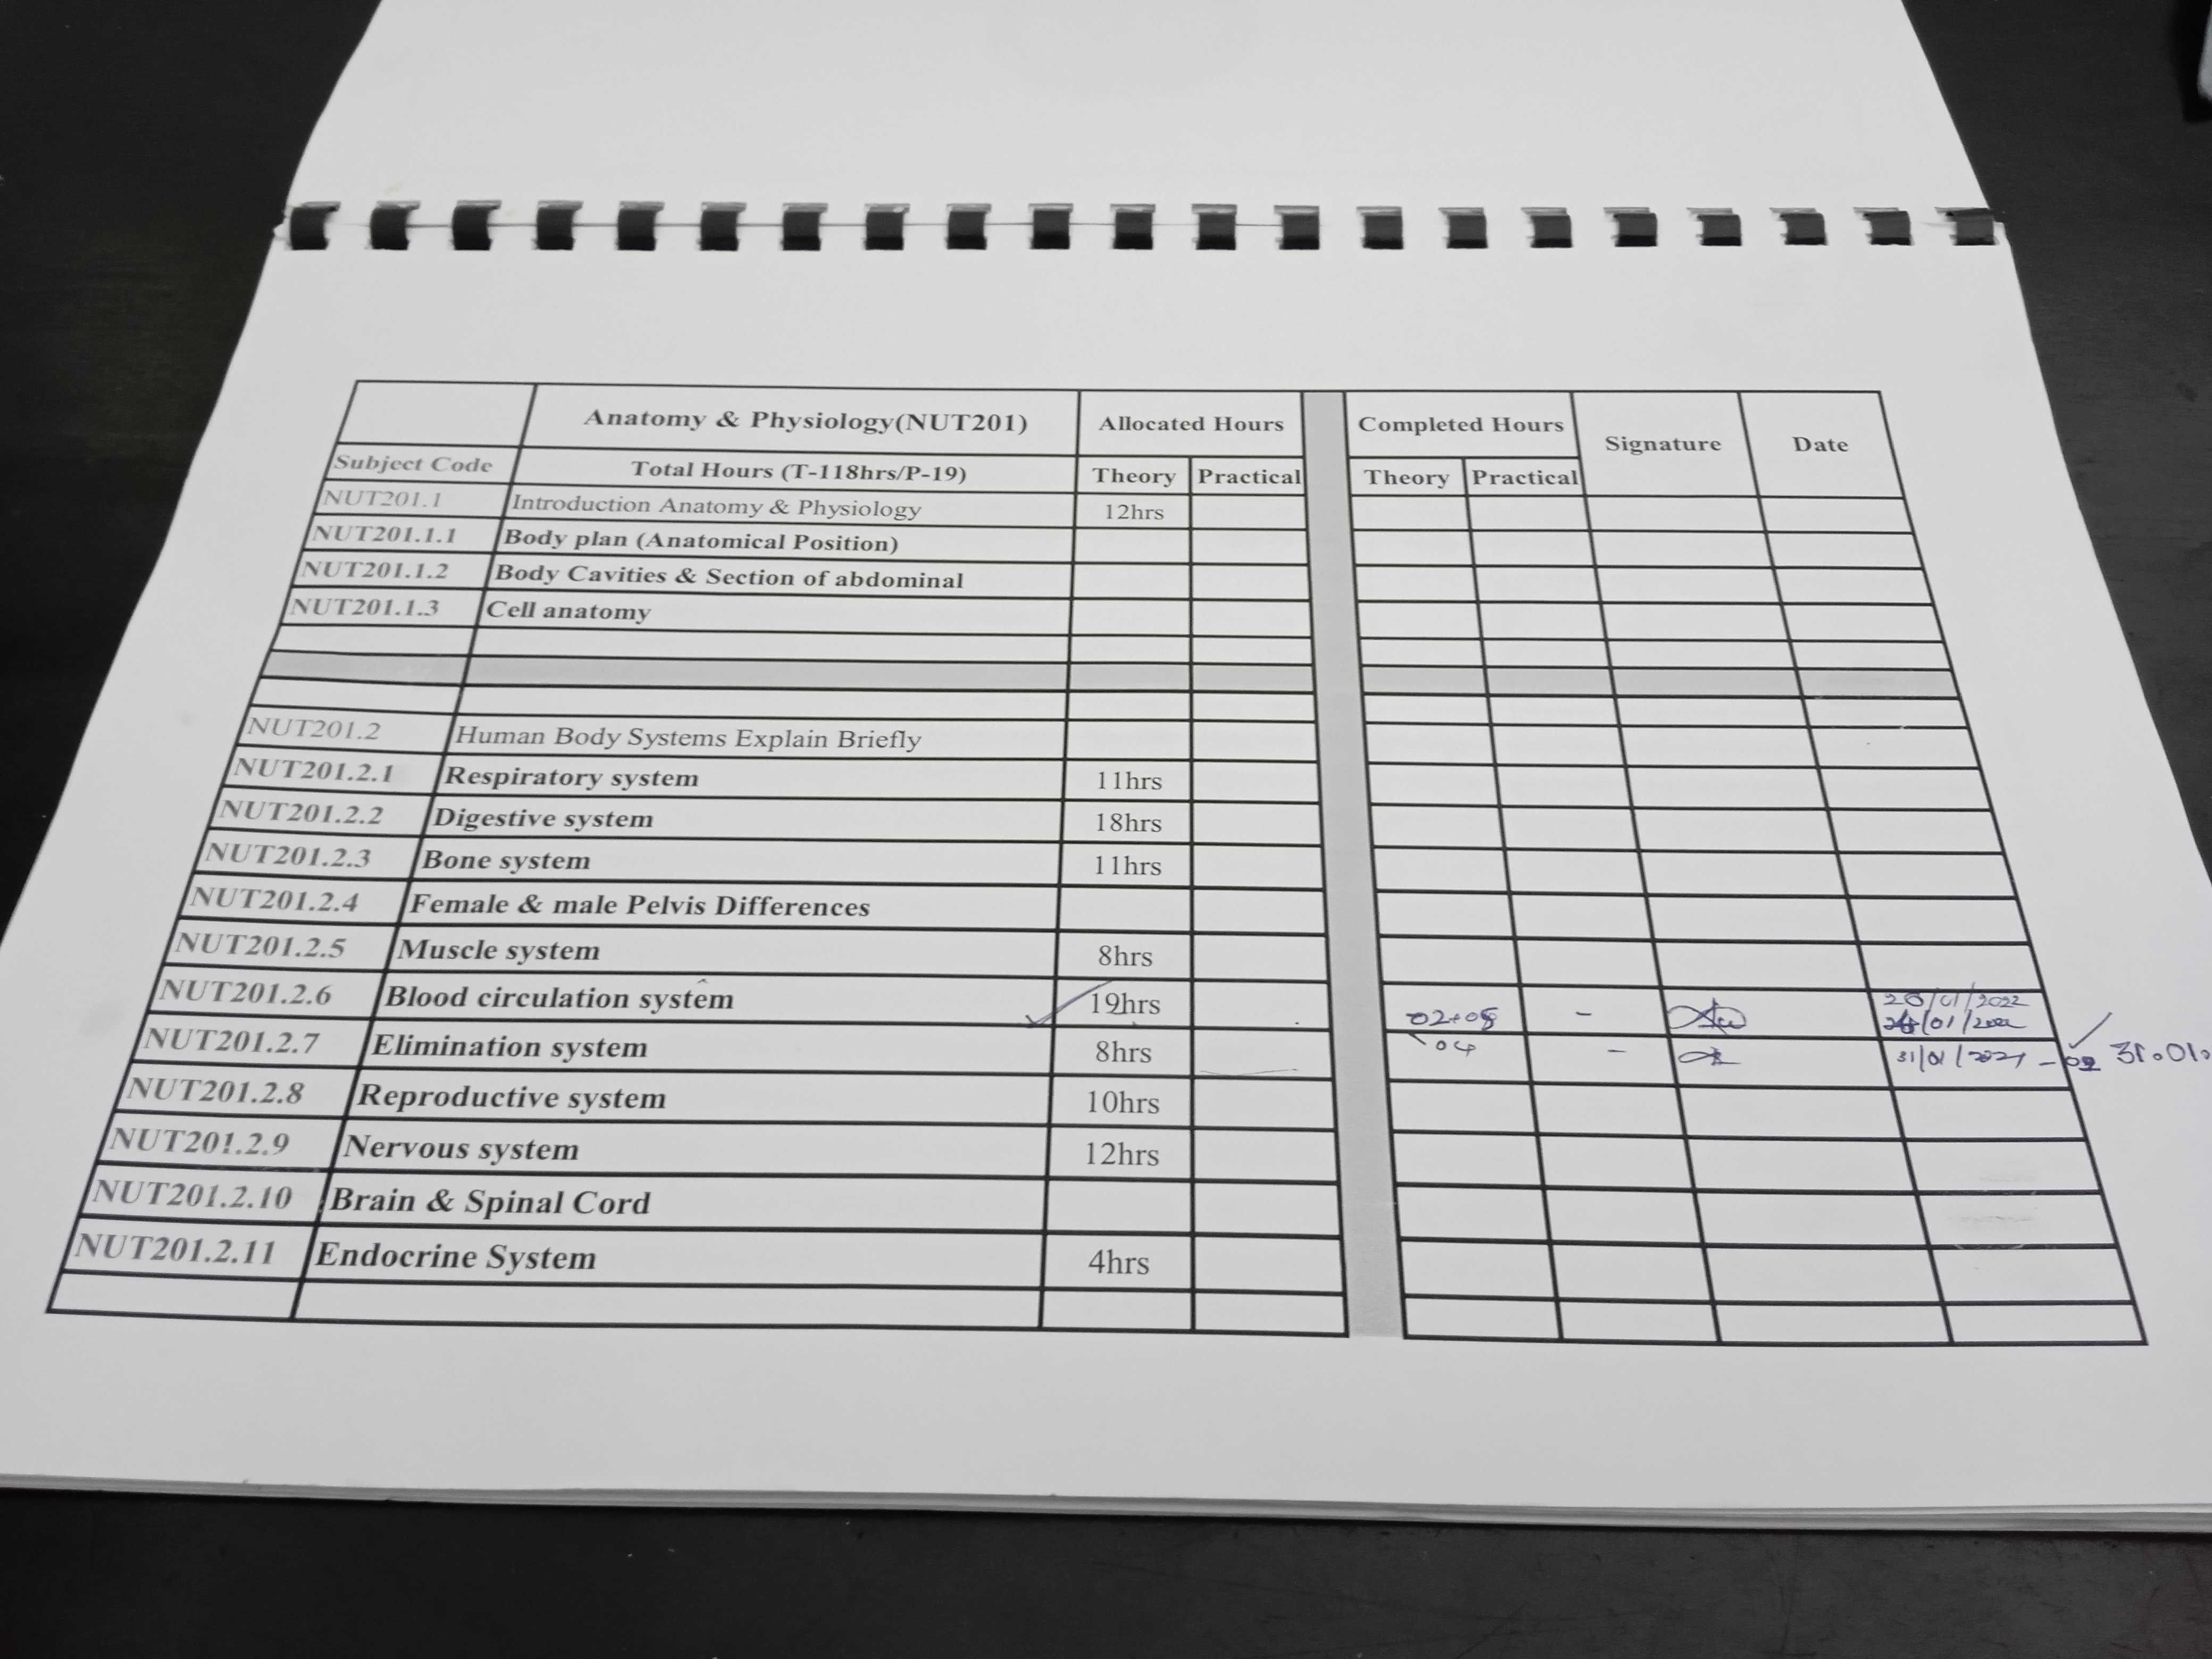 Anatomy & Physiology(NUT201) Allocated Hours Completed Hours Signature Date
Subject Code Total Hours (T-118hrs/P-19) Theory Practical Theory Practical
NUT201.1 Introduction Anatomy & Physiology 12hrs
NUT201.1.1 Body plan (Anatomical Position)
NUT201.1.2 Body Cavities & Section of abdominal
NUT201.1.3 Cell anatomy
NUT201.2 Human Body Systems Explain Briefly
NUT201.2.1 Respiratory system 11hrs
NUT201.2.2 Digestive system 18hrs
NUT201.2.3 Bone system 11hrs
NUT201.2.4 Female & male Pelvis Differences
NUT201.2.5 Muscle system 8hrs
NUT201.2.6 Blood circulation system 19hrs 02+08 -
NUT201.2.7 Elimination system 8hrs 04 - 31.01.
NUT201.2.8 Reproductive system 10hrs
NUT201.2.9 Nervous system 12hrs
NUT201.2.10 Brain & Spinal Cord
NUT201.2.11 Endocrine System 4hrs